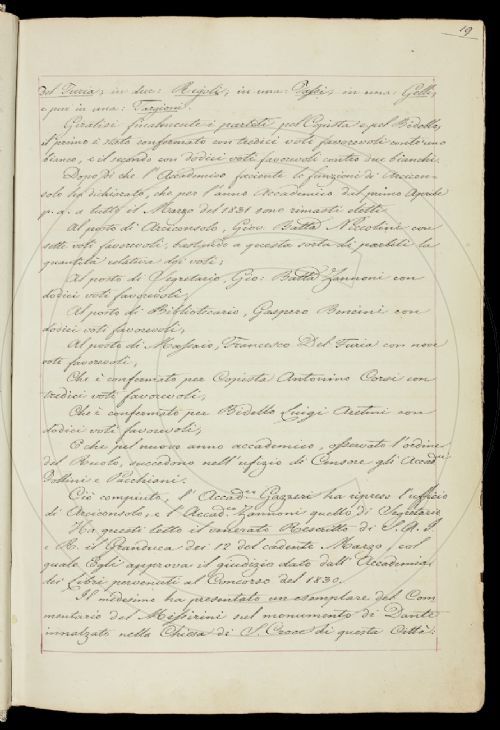 19
Del Furia; in due: Rigoli; in una: Poggi; in una: Gelli,
e pur in una: Targioni.
Giratisi finalmente i partiti pel Copista e pel Bidello,
il primo è stato confermato con tredici voti favorevoli contro uno
bianco, e il secondo con dodici voti favorevoli contro due bianchi.
Dopo di che l'Accademico facente le funzioni di Arcicon-
solo ha dichiarato, che per l'anno Accademico dal primo Aprile
p. a. a tutto il Marzo del 1831 sono rimasti eletti
Al posto di Arciconsolo, Giov. Batta Niccolini con
sette voti favorevoli, bastando a questa sorta di partiti la
quantità relativa dei voti;
Al posto di Segretario, Gio: Batta Zannoni con
dodici voti favorevoli;
Al posto di Bibliotecario, Gaspero Bencini con
dodici voti favorevoli;
Al posto di Massaio, Francesco Del Furia con nove
voti favorevoli;
Che è confermato per Copista Antonino Corsi con
tredici voti favorevoli;
Che è confermato per Bidello Luigi Aretini con
dodici voti favorevoli;
E che pel nuovo anno accademico, osservato l'ordine
del Ruolo, succedono nell'ufizio di Censore gli Accad.ci
e Pacchiani.
Ciò compiuto, l'Accad.co Gazzeri ha ripreso l'uffizio
di Arciconsolo, e l'Accad.co Zannoni quello di Segretario
Ha questi letto il venerato Rescritto di S. A. I.
e R. il Granduca dei 12 del cadente Marzo, col
quale Egli approva il giudizio dato dall'Accademia
dei Libri pervenuti al Concorso del 1830.
Il medesimo ha presentato un esemplare del Com
mentario del Missirini sul monumento di Dante
innalzato nella Chiesa di S. Croce di questa Città: